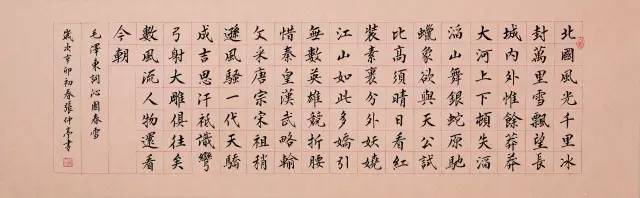 北國風光千里冰
封萬里雪飄望長
城內外惟餘莽莽
大河上下頓失滔
滔山舞銀蛇原馳
蠟象欲與天公試
比高須晴日看紅
裝素裹分外妖嬈
江山如此多嬌引
無數英雄競折腰
惜秦皇漢武略輸
文采唐宗宋祖稍
遜風騷一代天驕
成吉思汗祇識彎
弓射大雕俱往矣
數風流人物還看
今朝
毛澤東詞沁園春雪
歲在辛卯初春張仲亭書